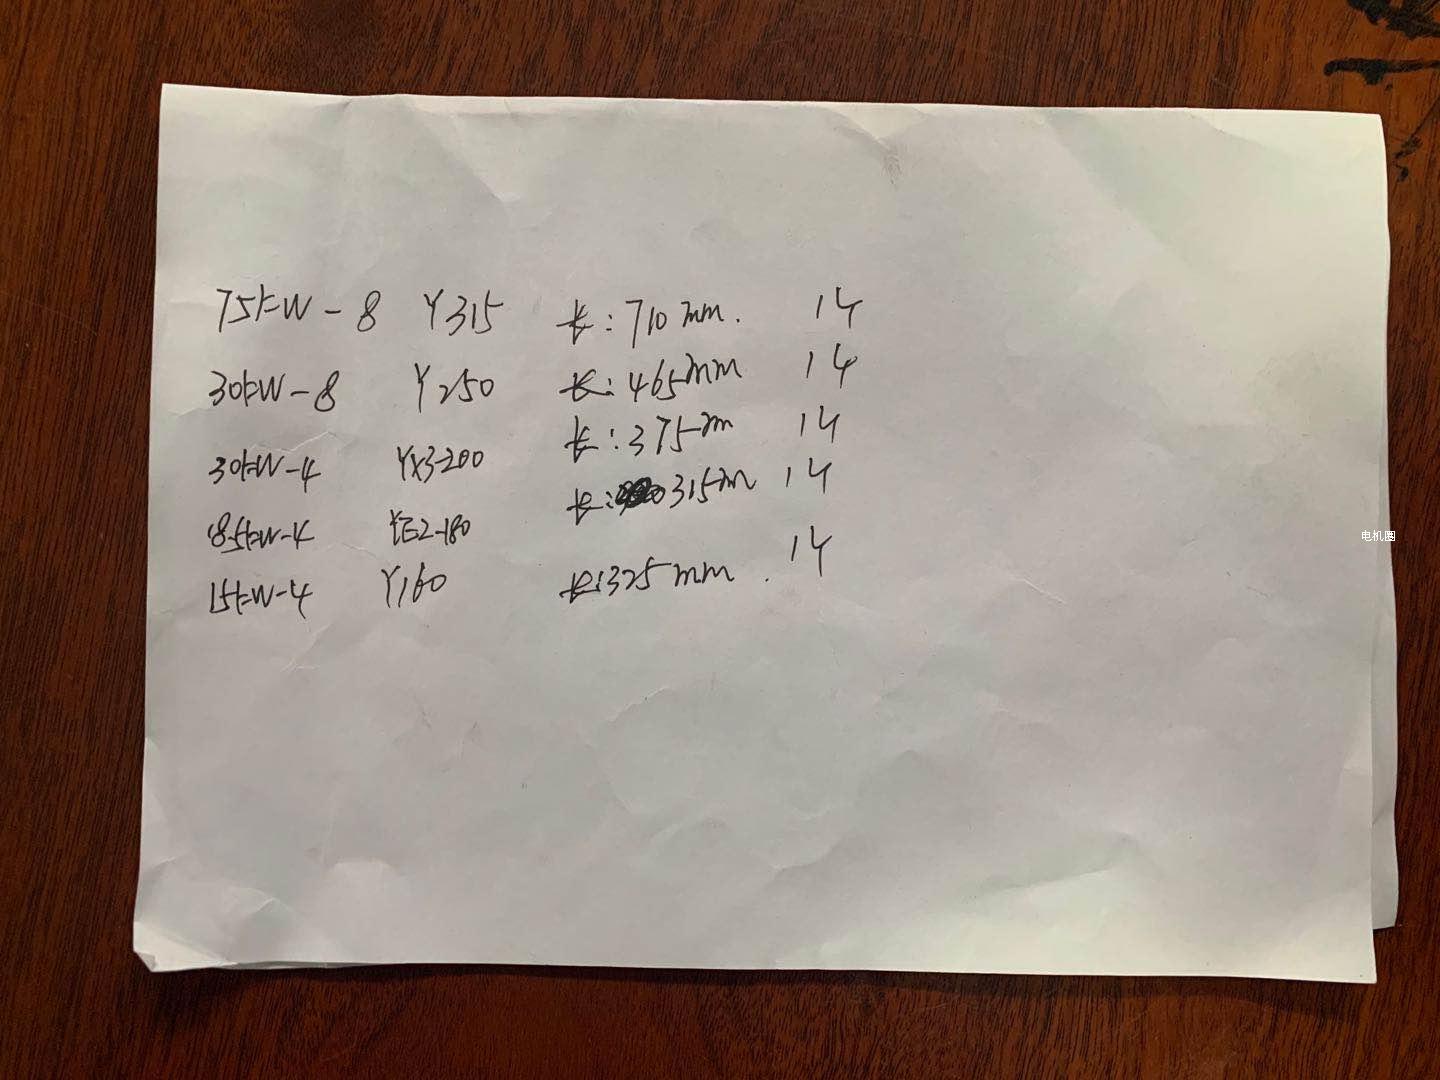 75kW-8 Y315 长:710mm. 14
30kW-8 Y250 长:465mm 14
30kW-4 YX3-200 长:375m 14
18.5kW-4 YE2-180 长:315m 14
15kW-4 Y160 长:325mm. 14
电机圈